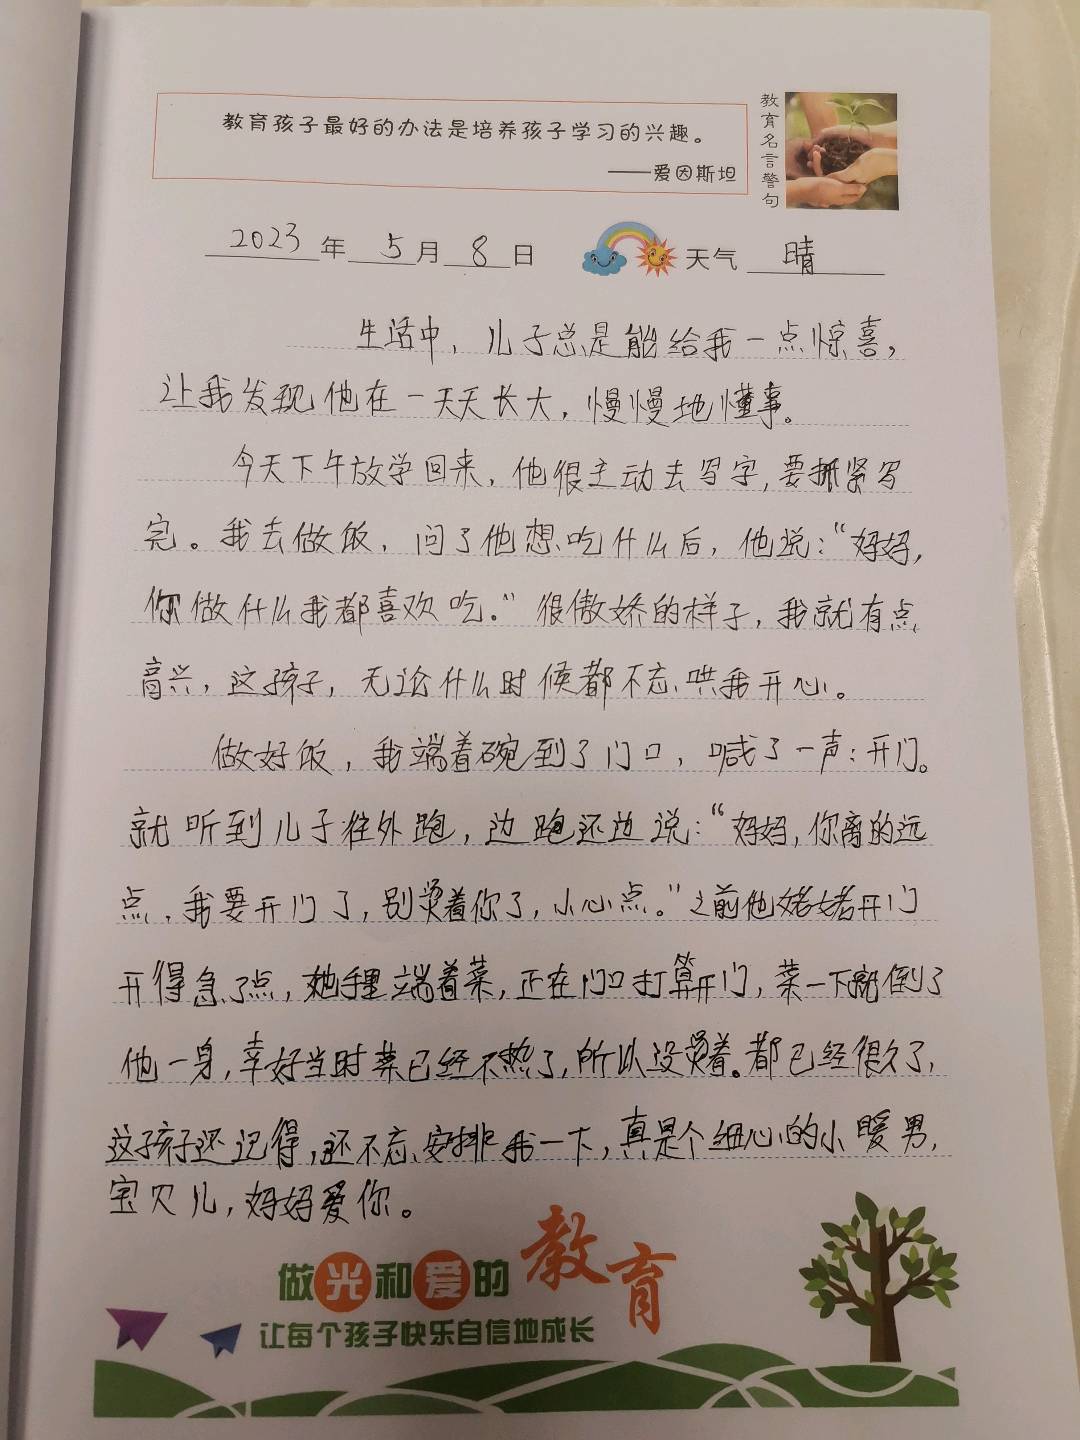 教育孩子最好的办法是培养孩子学习的兴趣。
——爱因斯坦
教育名言警句
2023年5月8日 天气 晴
生活中，儿子总是能给我一点惊喜，
让我发现他在一天天长大，慢慢地懂事。
今天下午放学回来，他很主动去写字，要抓紧写
完。我去做饭，问了他想吃什么后，他说：“妈妈，
你做什么我都喜欢吃。”很傲娇的样子，我就有点
高兴，这孩子，无论什么时候都不忘哄我开心。
做好饭，我端着碗到了门口，喊了一声：开门。
就听到儿子往外跑，边跑还边说：“妈妈，你离的远
点，我要开门了，别烫着你了，小心点。”之前他姥姥开门
开得急了点，她手里端着菜，正在门口打算开门，菜一下就倒了
他一身，幸好当时菜已经不热了，所以没烫着。都已经很久了，
这孩子还记得，还不忘安排我一下，真是个细心的小暖男，
宝贝儿，妈妈爱你。
做光和爱的教育
让每个孩子快乐自信地成长